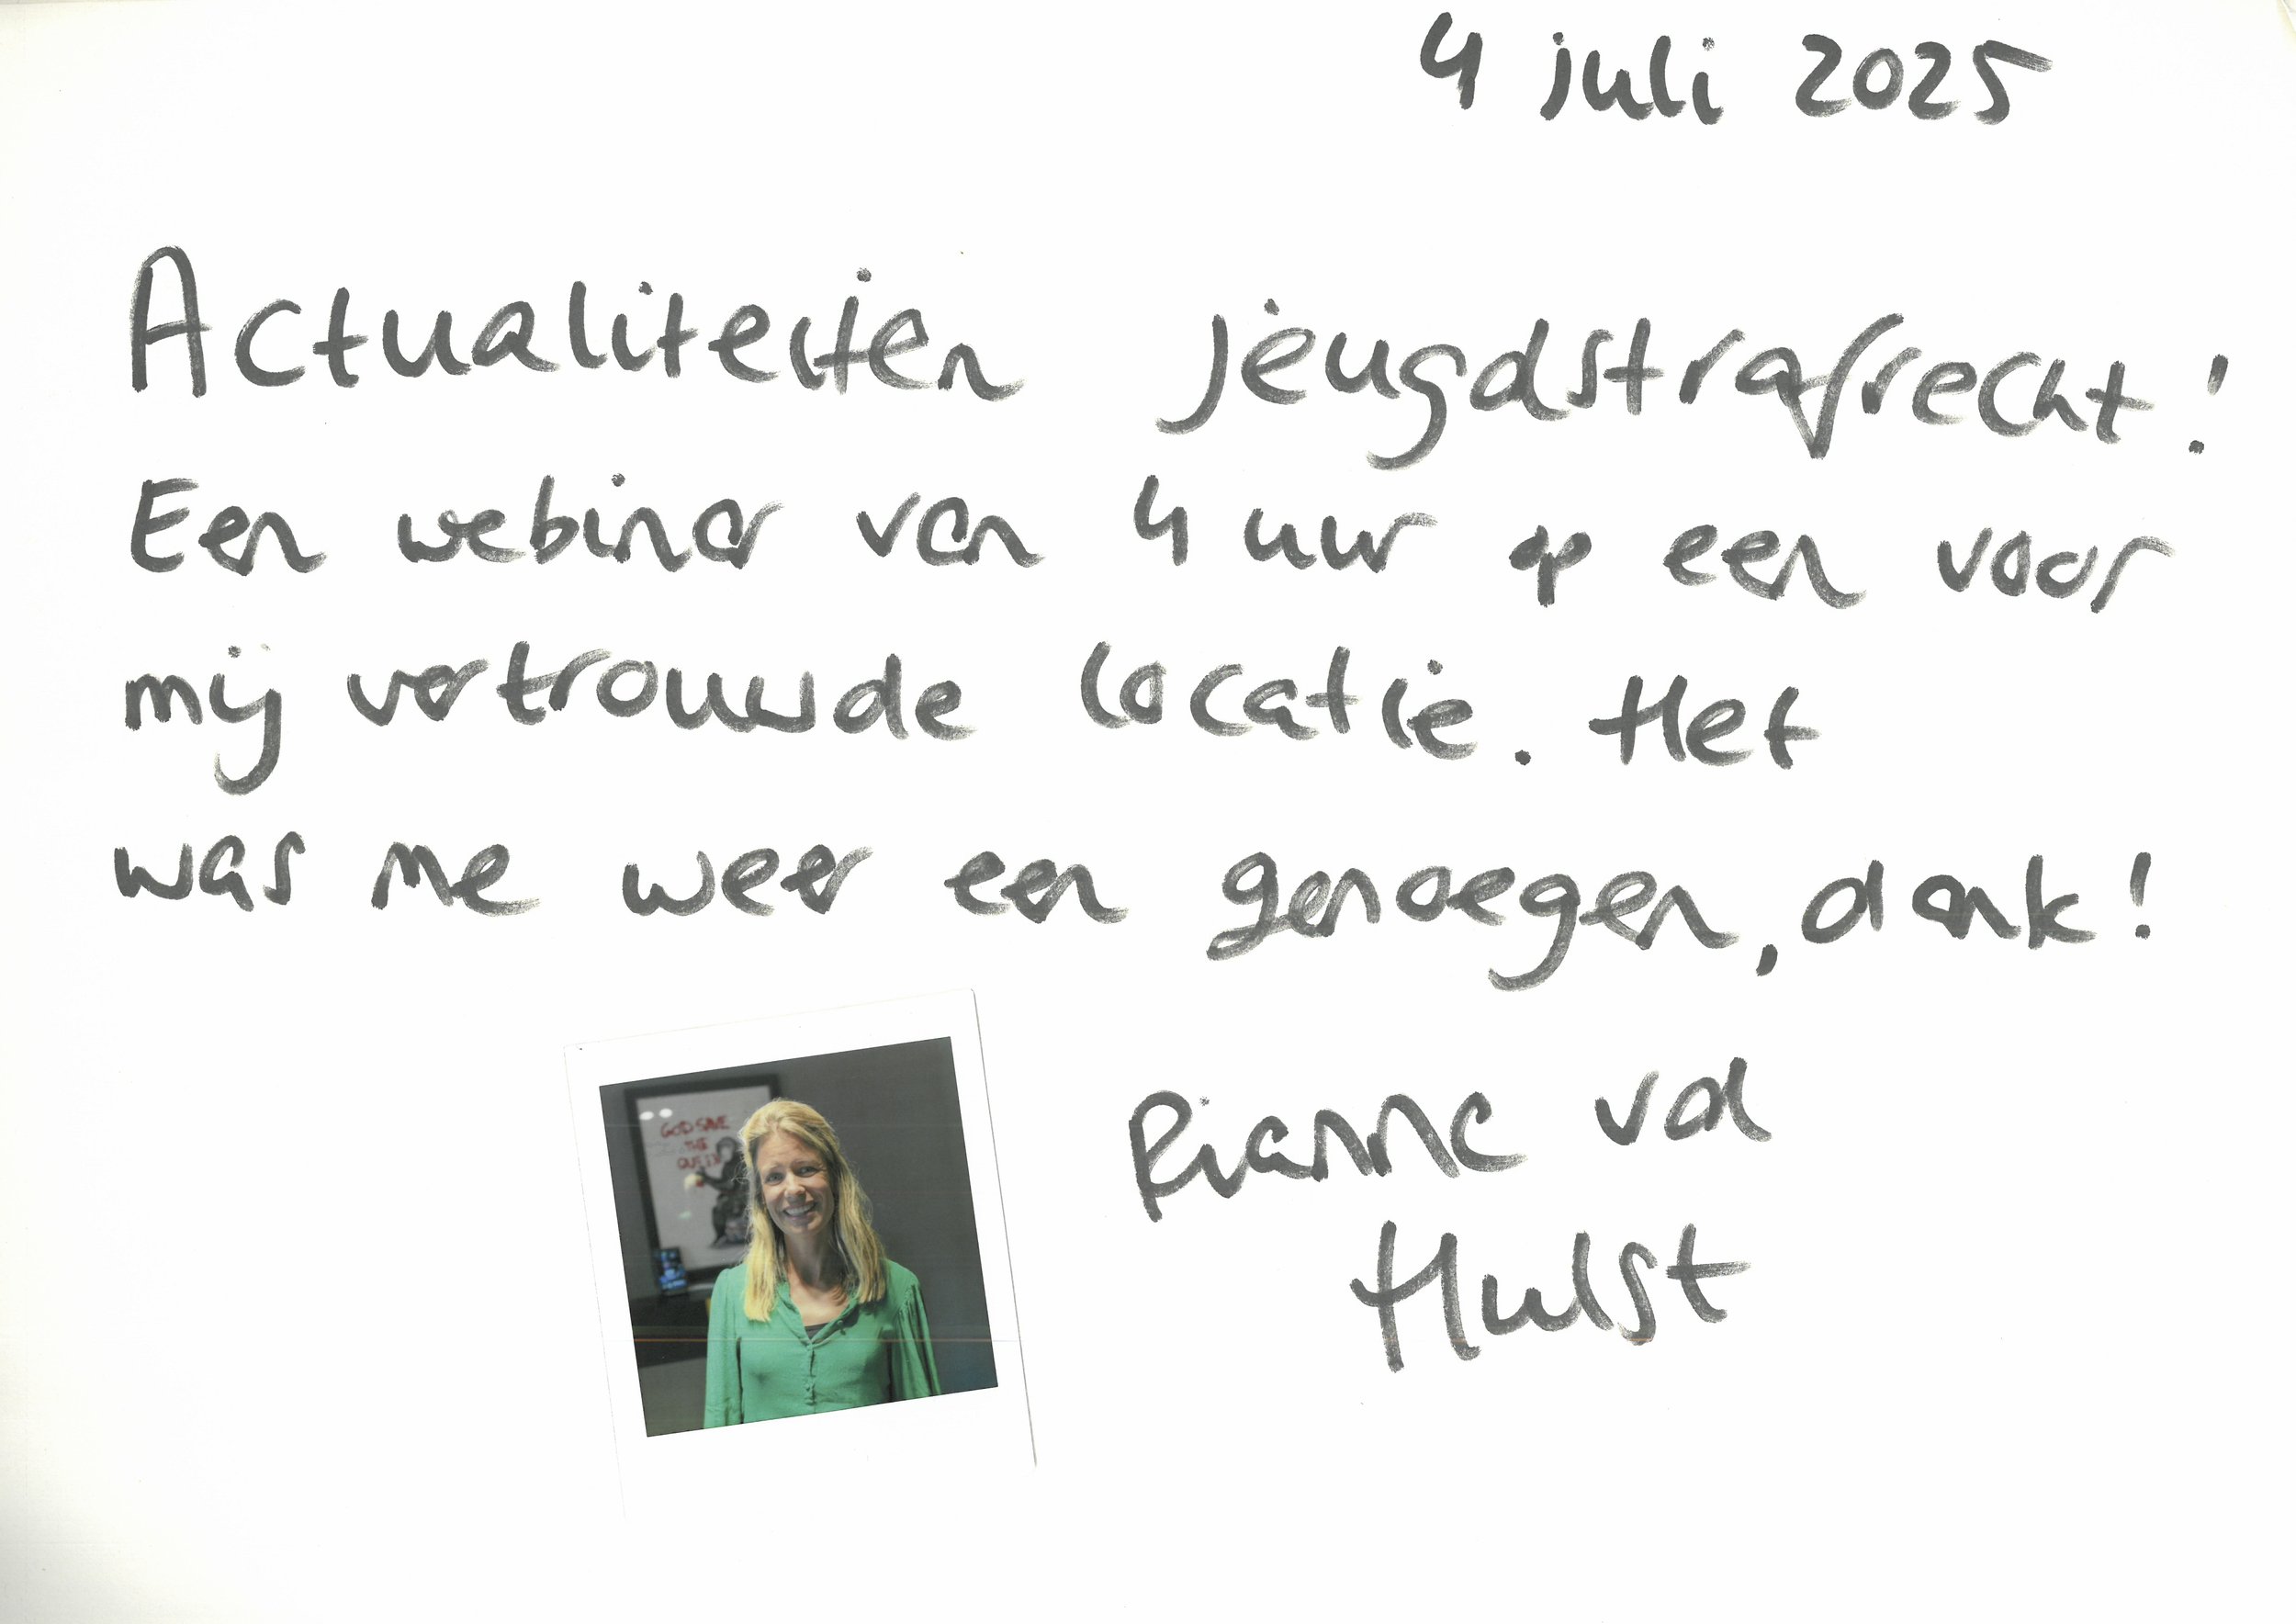 4 juli 2025
Actualiteiten jeugdstrafrecht!
Een webinar van 4 uur op een voor
mij vertrouwde locatie. Het
was me weer een genoegen, dank!
GOD SAVE
THE
QUEEN
Rianne vd
Hulst